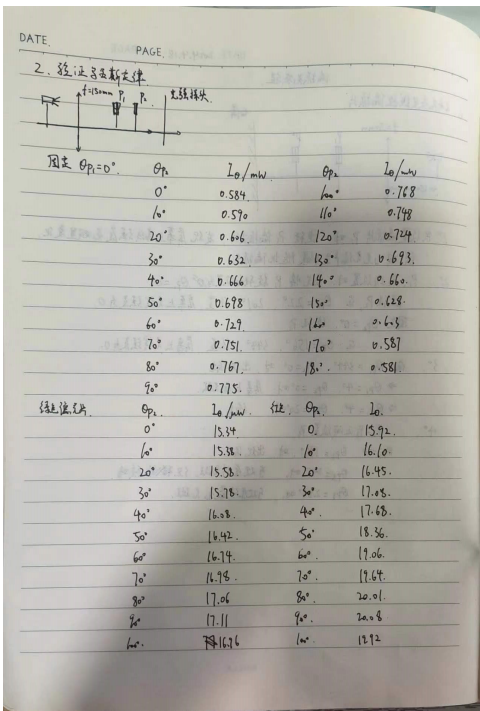 DATE.
PAGE.
2. 验证马吕斯定律
f=150mm P₁ P₂ 光强探头.
固定 θp₁=0°. θp₂ I₀/mW. θp₂ I₀/mW
0° 0.584 100° 0.768
10° 0.590 110° 0.748
20° 0.606 120° 0.724
30° 0.632 130° 0.693
40° 0.666 140° 0.660.
50° 0.698 150° 0.628.
60° 0.729. 160° 0.603
70° 0.751. 170° 0.587
80° 0.767. 180°. 0.581
90° 0.775.
θp₂. I₀/mW. θp₂. I₀.
0° 15.34 0. 15.92.
10° 15.38 10° 16.10.
20° 15.58 20° 16.45.
30° 15.78. 30° 17.08.
40° 16.08. 40° 17.68.
50° 16.42. 50° 18.36.
60° 16.74. 60°. 19.06.
70° 16.98. 70°. 19.64.
80° 17.06 80°. 20.01.
90° 17.11 90°. 20.08
100°. 16.76 100° 19.92